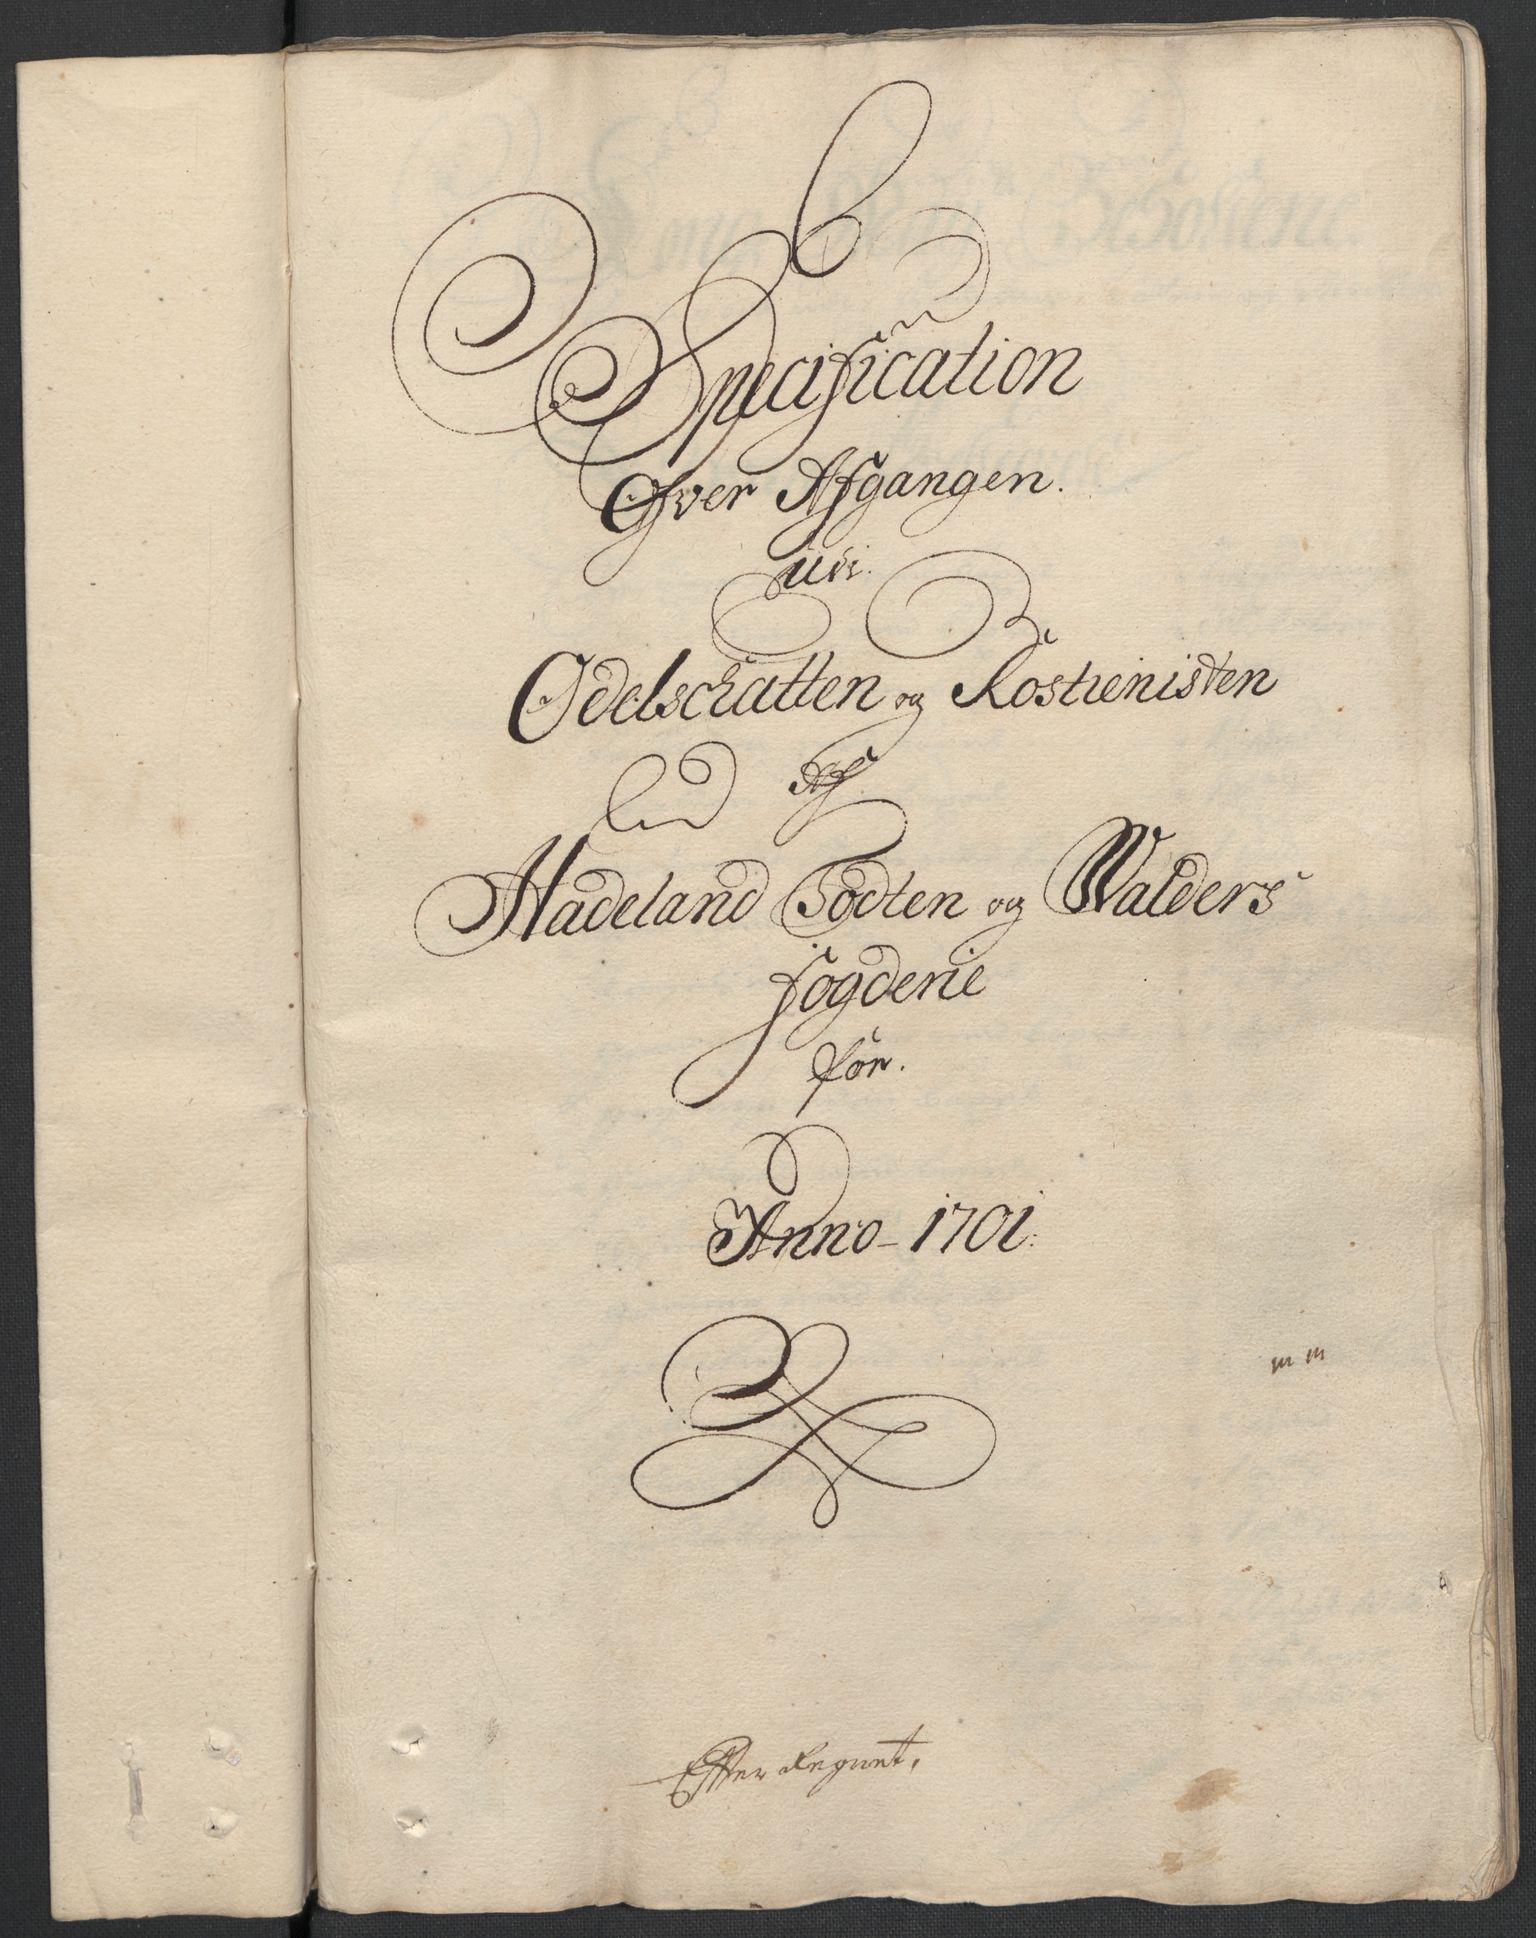 Specification
Ofver Afgangen.
udi.
Odelschatten og Rostienisten
Af
Hadeland Todten og Walders
fogderie
for.
Anno - 1701.
m m
Efter Regnet.